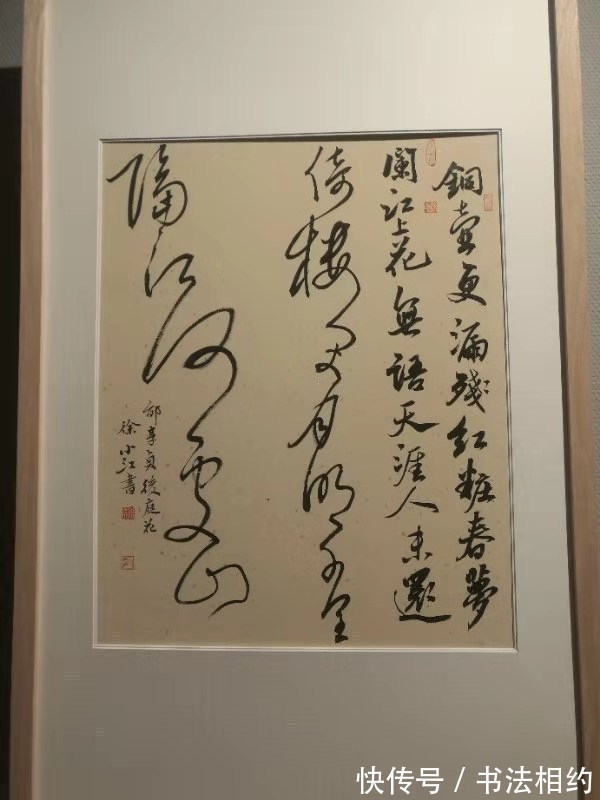 銅壺更漏殘紅粧春夢
闌江上花無語天涯人未還
倚樓閒月明千里
隔江何處山
邵亨貞後庭花
徐小江書
快传号 / 书法相约